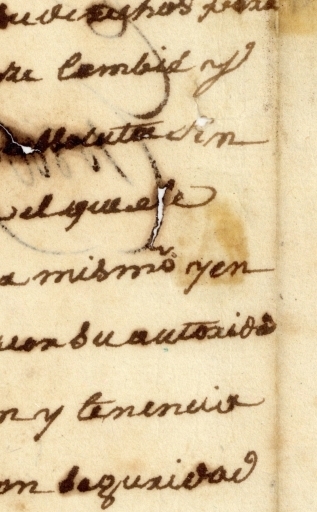 su derecho para
se cambie y
absoluta sin
el que ese
a mismo y en
con su autorida
n y tenencia
on seguridad